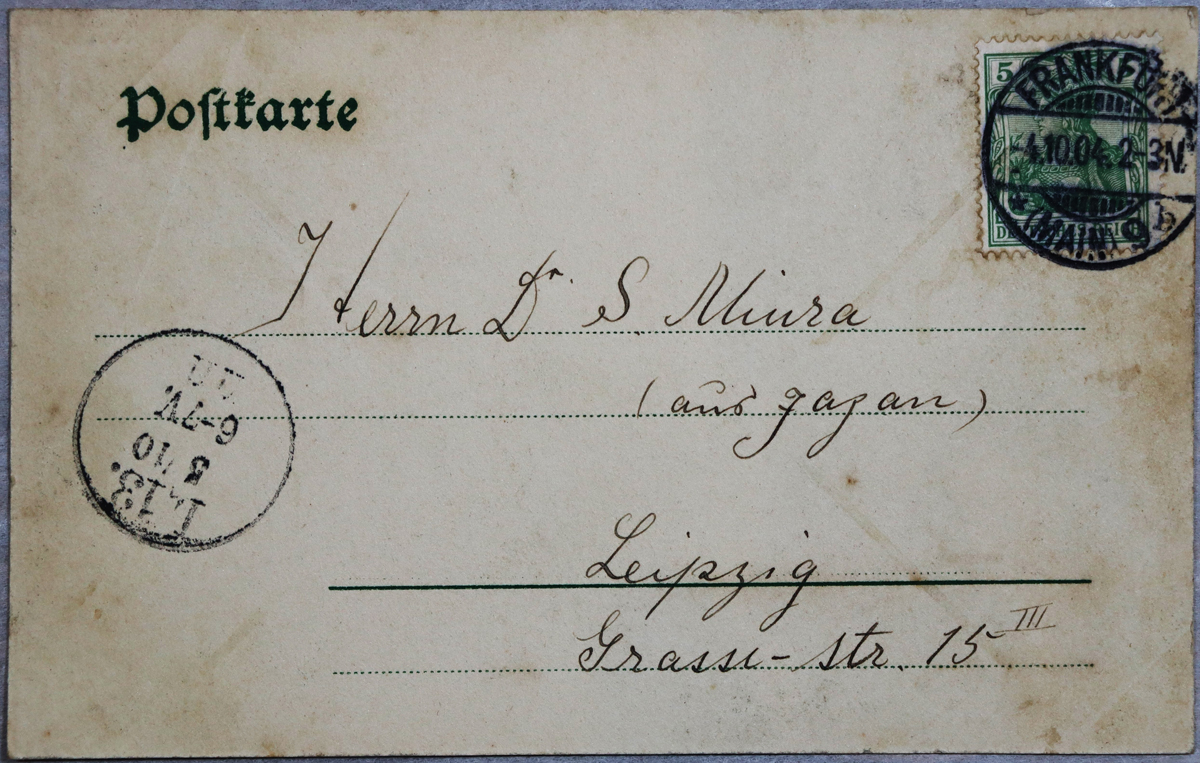 Poſtkarte
5
FRANKFURT
-4.10.04. 2-3N.
* (MAIN) 9 b
Herrn Dr. S. Miura
(aus Japan)
6-7V.
3 10
L.13.
Leipzig
Grassi-str. 15 III